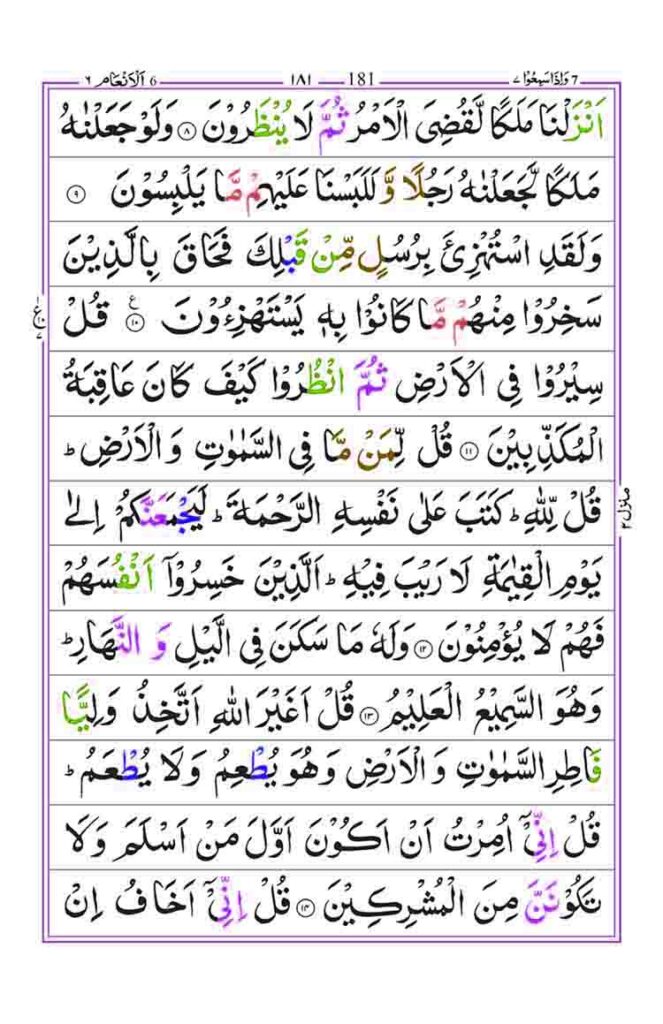 7 وَاِذَا سَمِعُوْا ۷ 181 ۱۸۱ 6 اَلْاَنْعَام ۶
اَنْزَلْنَا مَلَكًا لَّقُضِیَ الْاَمْرُ ثُمَّ لَا یُنْظَرُوْنَ ۸ وَلَوْ جَعَلْنٰهُ
مَلَكًا لَّجَعَلْنٰهُ رَجُلًا وَّ لَلَبَسْنَا عَلَیْهِمْ مَّا یَلْبِسُوْنَ ۹
وَلَقَدِ اسْتُهْزِئَ بِرُسُلٍ مِّنْ قَبْلِكَ فَحَاقَ بِالَّذِیْنَ
سَخِرُوْا مِنْهُمْ مَّا كَانُوْا بِهٖ یَسْتَهْزِءُوْنَ ۱۰ ع قُلْ
سِیْرُوْا فِی الْاَرْضِ ثُمَّ انْظُرُوْا كَیْفَ كَانَ عَاقِبَةُ
الْمُكَذِّبِیْنَ ۱۱ قُلْ لِّمَنْ مَّا فِی السَّمٰوٰتِ وَ الْاَرْضِ ؕ
قُلْ لِّلّٰهِ ؕ كَتَبَ عَلٰی نَفْسِهِ الرَّحْمَةَ ؕ لَیَجْمَعَنَّكُمْ اِلٰی
یَوْمِ الْقِیٰمَةِ لَا رَیْبَ فِیْهِ ؕ اَلَّذِیْنَ خَسِرُوْۤا اَنْفُسَهُمْ
فَهُمْ لَا یُؤْمِنُوْنَ ۱۲ وَلَهٗ مَا سَكَنَ فِی الَّیْلِ وَ النَّهَارِ ؕ
وَهُوَ السَّمِیْعُ الْعَلِیْمُ ۱۳ قُلْ اَغَیْرَ اللّٰهِ اَتَّخِذُ وَلِیًّا
فَاطِرِ السَّمٰوٰتِ وَ الْاَرْضِ وَهُوَ یُطْعِمُ وَلَا یُطْعَمُ ؕ
قُلْ اِنِّیْۤ اُمِرْتُ اَنْ اَكُوْنَ اَوَّلَ مَنْ اَسْلَمَ وَلَا
تَكُوْنَنَّ مِنَ الْمُشْرِكِیْنَ ۱۴ قُلْ اِنِّیْۤ اَخَافُ اِنْ
منزل ۲